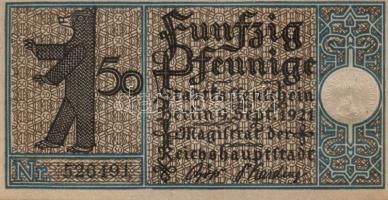 Fünfzig
50 Pfennige
Stadtkassenschein
Berlin 9. Sept. 1921
Magistrat der
Reichshauptstadt
Nr. 526191